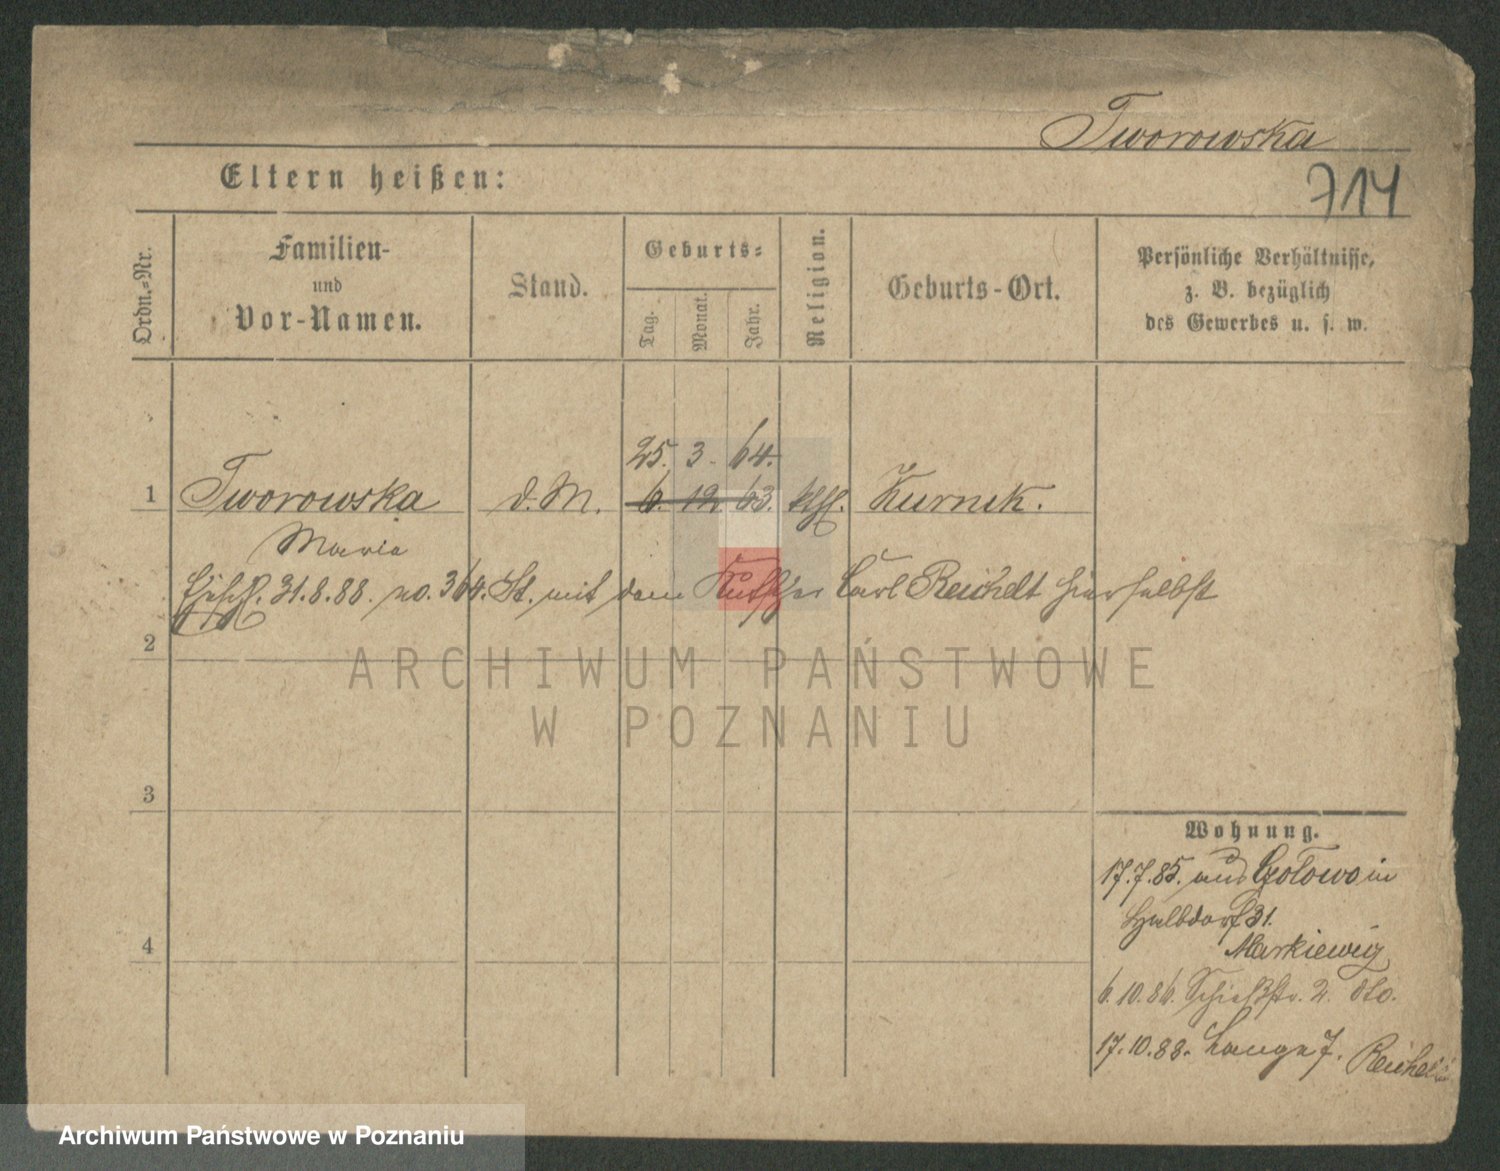 Tworowska
714
Eltern heißen:
Ordn.-Nr.
Familien-
und
Vor-Namen.
Stand.
Geburts-
Tag.
Monat.
Jahr.
Religion.
Geburts-Ort.
Persönliche Verhältnisse,
z. B. bezüglich
des Gewerbes u. s. w.
25. 3. 64.
1 Tworowska d. M. 6. 12. 63. kth. Kurnik.
Maria
31.8.88. no. 364. St. mit dem Kutscher Carl Reichelt hierselbst
2
3
4
ARCHIWUM PAŃSTWOWE
W POZNANIU
Wohnung.
17.7.85. aus in
Halbdorf 31.
6.10.86. Schießstr. 2. dto.
17.10.88. Lange 7. Reichelt
Archiwum Państwowe w Poznaniu